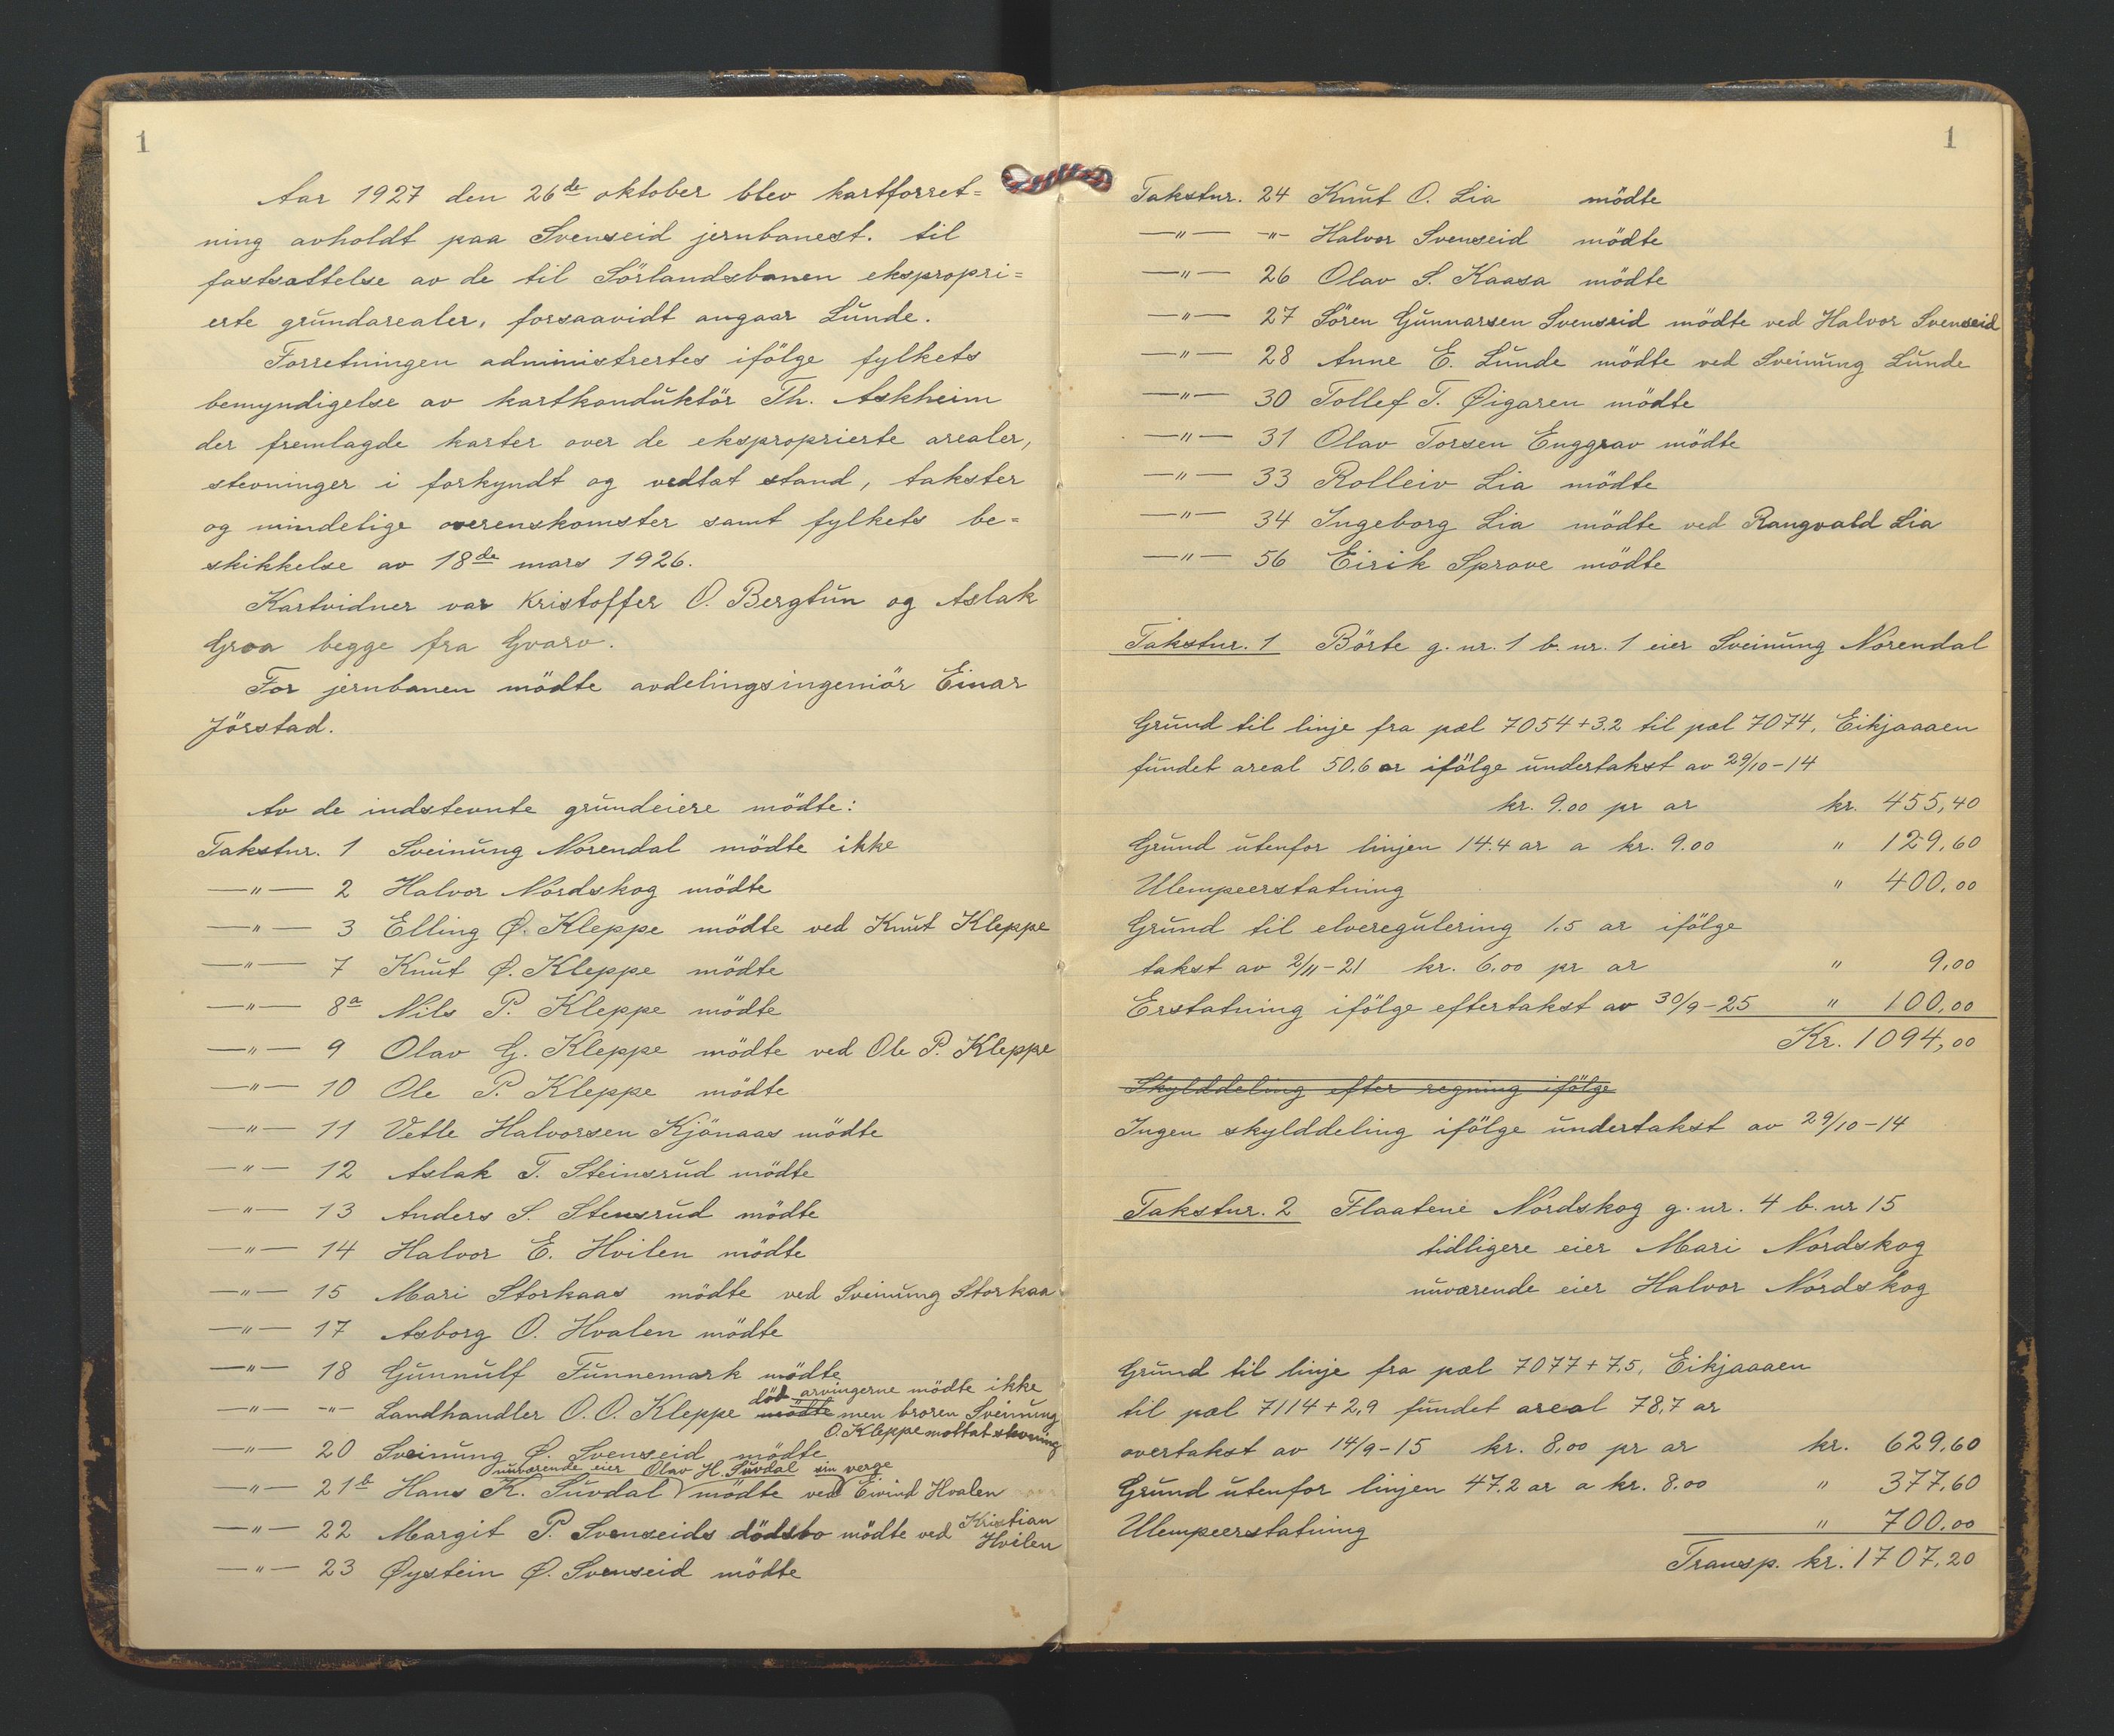 1
Aar 1927 den 26de oktober blev kartforret=
ning avholdt paa Svenseid jernbanest. til
fastsættelse av de til Sörlandsbanen ekspropri=
erte grundarealer, forsaavidt angaar Lunde.
Forretningen administrertes ifölge fylkets
bemyndigelse av kartkonduktör Th. Askheim
der fremlagde karter over de eksproprierte arealer,
stevninger i forkyndt og vedtat stand, takster
og mindelige overenskomster samt fylkets be=
skikkelse av 18de mars 1926.
Kartvidner var Kristoffer O. Bergtun og Aslak
Groa begge fra Gvarv.
For jernbanen mödte avdelingsingeniör Einar
Jörstad.
Av de indstevnte grundeiere mödte:
Takstnr. 1 Sveinung Norendal mödte ikke
—"— 2 Halvor Nordskog mödte
—"— 3 Elling Ø. Kleppe mödte ved Knut Kleppe
—"— 7 Knut Ø. Kleppe mödte
—"— 8a Nils P. Kleppe mödte
—"— 9 Olav G. Kleppe mödte ved Ole P. Kleppe
—"— 10 Ole P. Kleppe mödte
—"— 11 Vetle Halvorsen Kjönaas mödte
—"— 12 Aslak T. Steinsrud mödte
—"— 13 Anders S. Stensrud mödte
—"— 14 Halvor E. Hvilen mödte
—"— 15 Mari Storkaas mödte ved Sveinung Storkaa
—"— 17 Asborg O. Hvalen mödte
—"— 18 Gunnulf Funnemark mödte
död arvingerne mödte ikke
—"— -"- Landhandler O. O. Kleppe mödte men broren Sveinung
O. Kleppe mottat stevning
—"— 20 Sveinung Ø. Svenseid mödte
nuværende eier Olav H. Suvdal sin verge
—"— 21b Hans K. Suvdal mödte ved Eivind Hvalen
—"— 22 Margit P. Svenseids dödsbo mödte ved Kristian
Hvilen
—"— 23 Øystein Ø. Svenseid mödte
1
Takstnr. 24 Knut O. Lia mödte
—"— -"- Halvor Svenseid mödte
—"— 26 Olav S. Kaasa mödte
—"— 27 Sören Gunnarsen Svenseid mödte ved Halvor Svenseid
—"— 28 Anne E. Lunde mödte ved Sveinung Lunde
—"— 30 Tollef T. Øigaren mödte
—"— 31 Olav Torsen Enggrav mödte
—"— 33 Rolleiv Lia mödte
—"— 34 Ingeborg Lia mödte ved Rangvald Lia
—"— 56 Eirik Sprove mödte
Takstnr. 1 Börte g. nr. 1 b. nr. 1 eier Sveinung Norendal
Grund til linje fra pæl 7054+3.2 til pæl 7074, Eikjaaaen
fundet areal 50.6 ar ifölge undertakst av 29/10-14
kr. 9.00 pr ar kr. 455,40
Grund utenfor linjen 14.4 ar a kr. 9.00 " 129,60
Ulempeerstatning " 400,00
Grund til elveregulering 1.5 ar ifölge
takst av 2/11-21 kr. 6.00 pr ar " 9,00
Erstatning ifölge eftertakst av 30/9-25 " 100,00
Kr. 1094,00
Skylddeling efter regning ifölge
Ingen skylddeling ifölge undertakst av 29/10-14
Takstnr. 2 Flaatene Nordskog g. nr. 4 b. nr 15
tidligere eier Mari Nordskog
nuværende eier Halvor Nordskog
Grund til linje fra pæl 7077+7.5, Eikjaaaen
til pæl 7114+2,9 fundet areal 78,7 ar
overtakst av 14/9-15 kr. 8,00 pr ar kr. 629,60
Grund utenfor linjen 47.2 ar a kr. 8.00 " 377,60
Ulempeerstatning " 700,00
Transp. kr. 1707,20